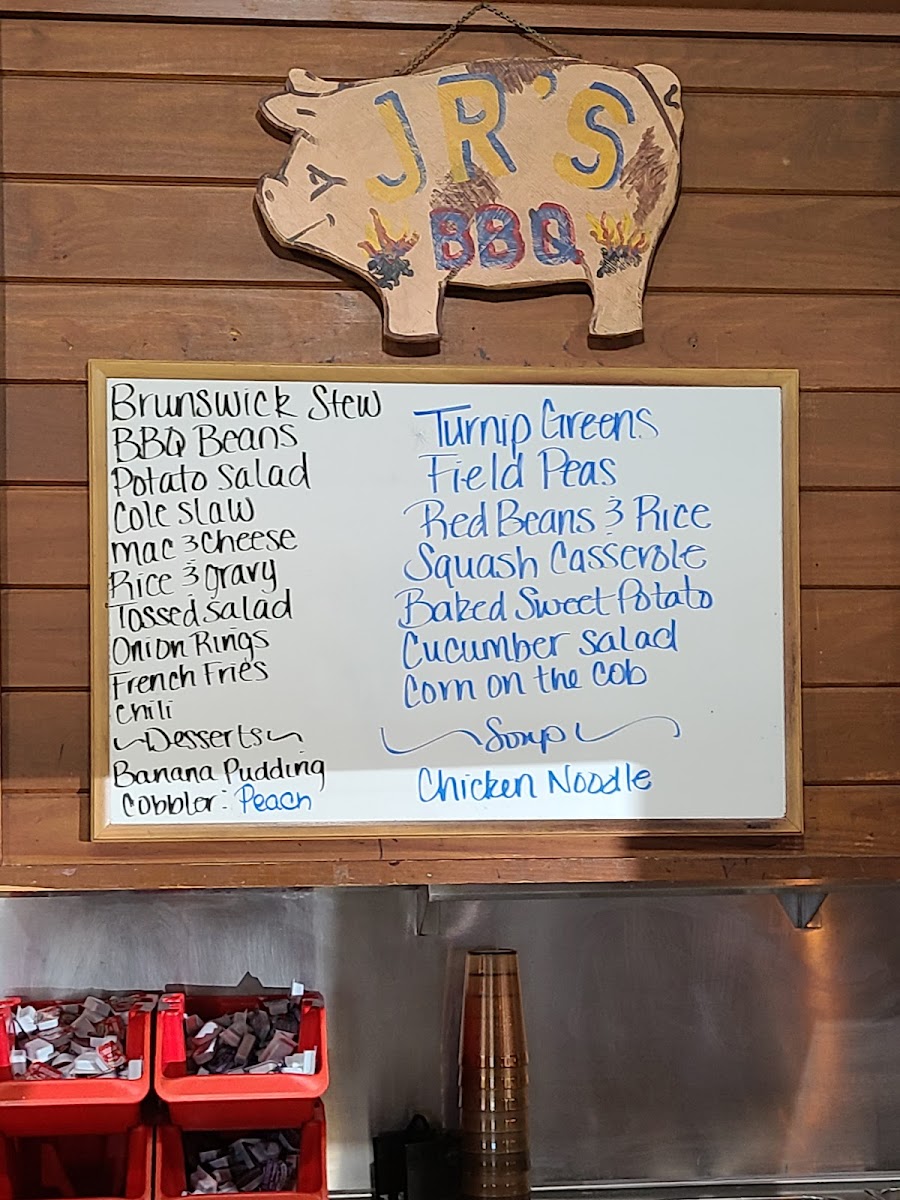 JR'S
BBQ
Brunswick Stew
BBQ Beans
Potato Salad
Cole Slaw
Mac & Cheese
Rice & Gravy
Tossed Salad
Onion Rings
French Fries
Chili
~Desserts~
Banana Pudding
Cobbler: Peach
Turnip Greens
Field Peas
Red Beans & Rice
Squash Casserole
Baked Sweet Potato
Cucumber Salad
Corn on the Cob
~Soup~
Chicken Noodle